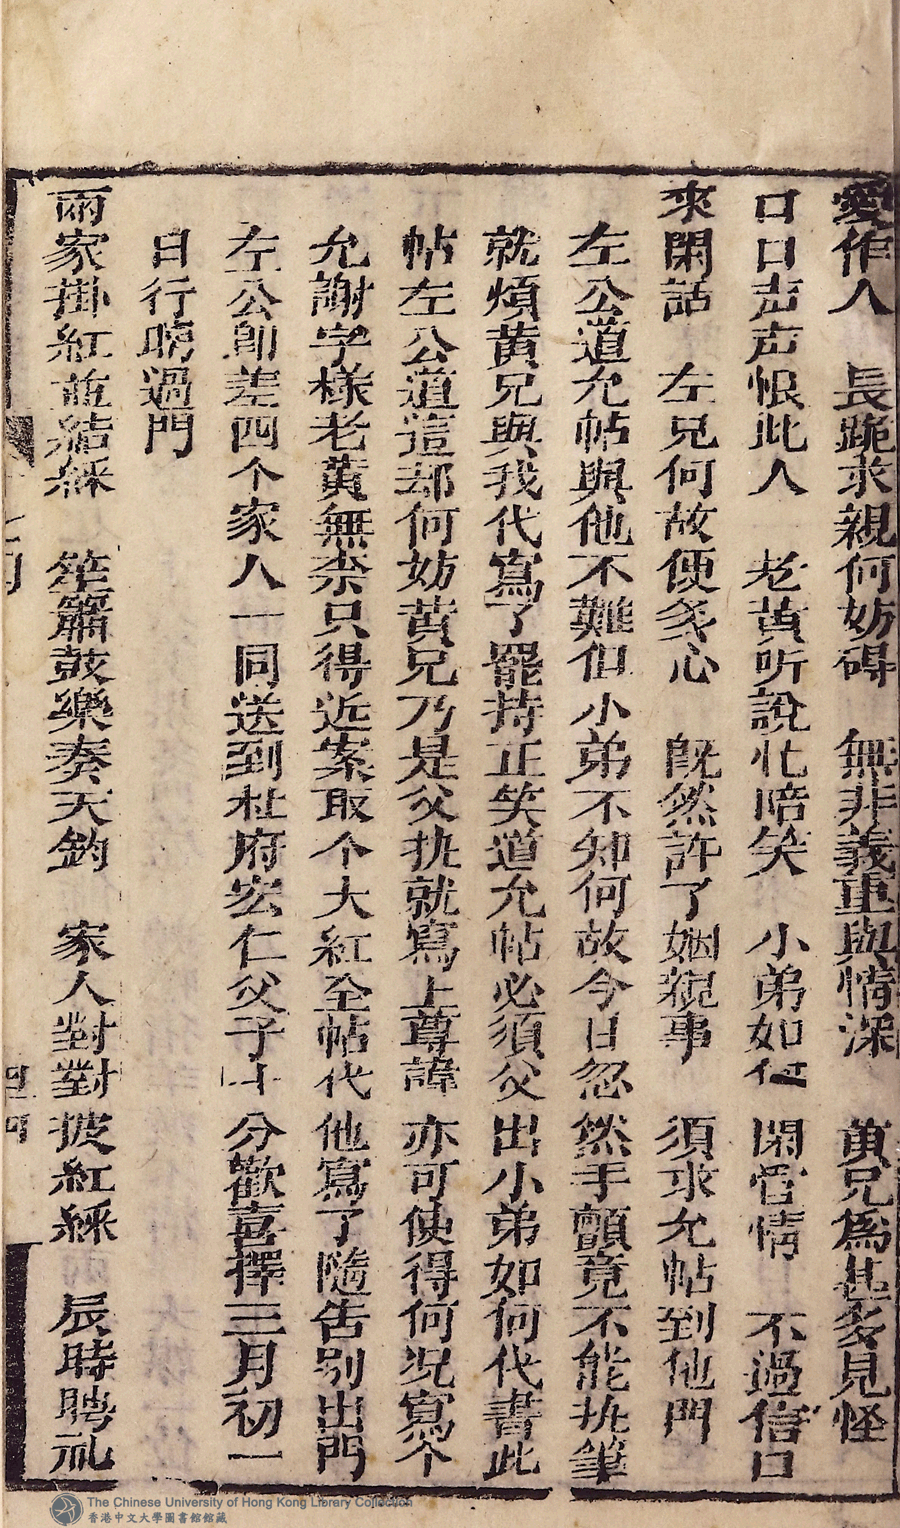 愛作人　長跪求親何妨碍　無非義重與情深　黄兄為甚多見怪
口口声声恨此人　老黄听說忙陪笑　小弟如何閑管情　不過信口
來閑話　左兄何故便多心　既然許了姻親事　須求允帖到他門
左公道允帖與他不難但小弟不知何故今日忽然手顫竟不能执筆
就煩黄兄與我代寫了罷持正笑道允帖必須父出小弟如何代書此
帖左公道這却何妨黄兄乃是父执就寫上尊諱亦可使得何况寫个
允謝字樣老黄無柰只得近案取个大紅全帖代他寫了隨告别出門
左公即差四个家人一同送到杜府宏仁父子十分歡喜擇三月初一
日行聘過門
兩家掛紅並結綵　笙簫鼓樂奏天鈞　家人對對披紅綵　辰時聘礼
The Chinese University of Hong Kong Library Collection
香港中文大學圖書館館藏